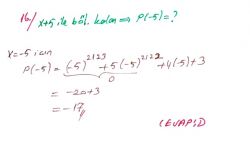 16/ x+5 ile böl. kalan ⟹ P(-5)=?
x=-5 için
P(-5) = (-5)^2123 + 5(-5)^2122 + 4(-5)+3
0
= -20+3
= -17//
CEVAP: D